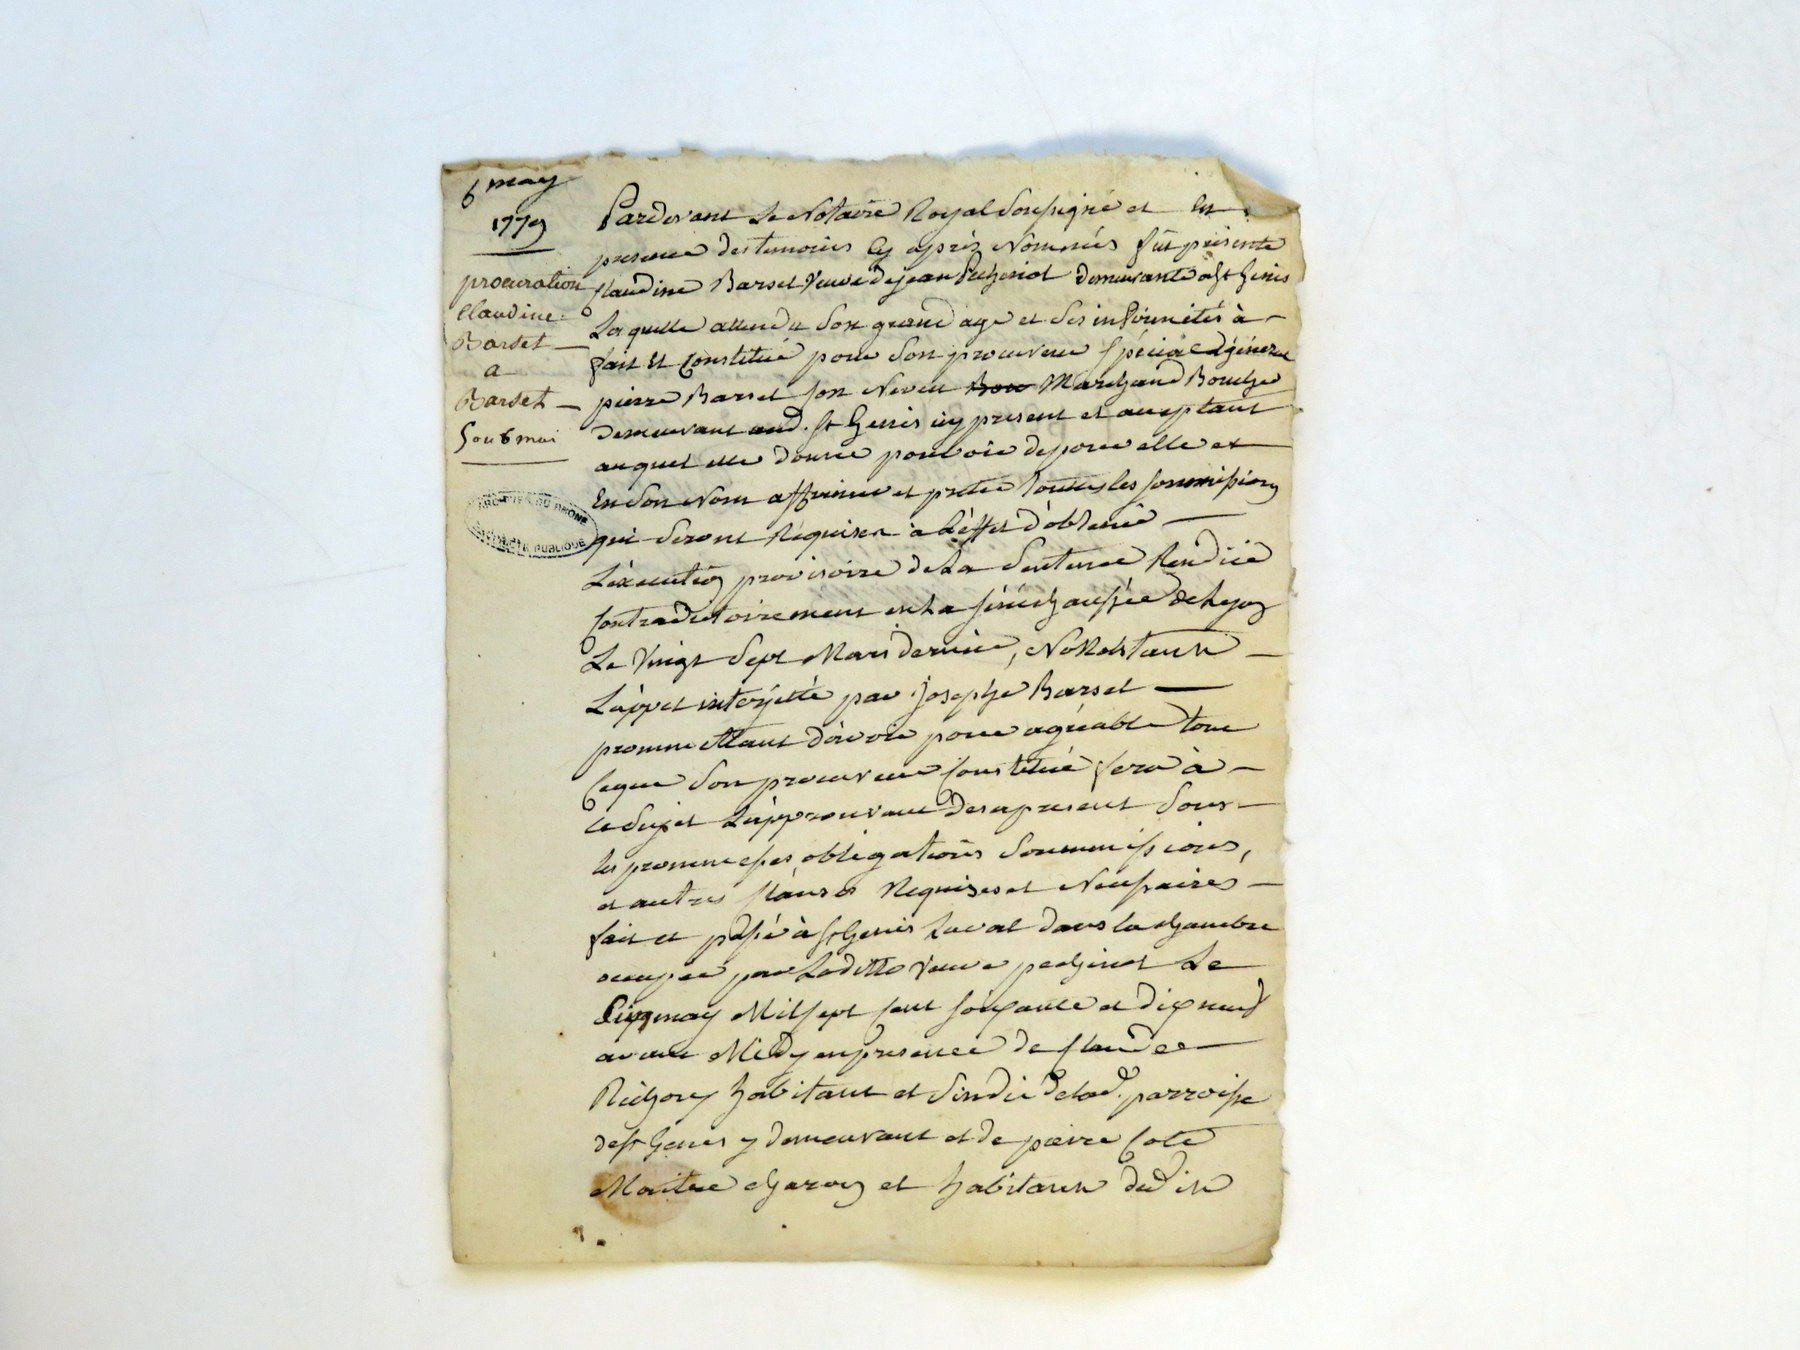 6 may
1779
procuration
Claudine
Barset
a
Barset
5 ou 6 mai
ARCHIVES DU RHÔNE
PROPRIÉTÉ PUBLIQUE
Pardevant Le Notaire Royal Soussigné et En
presence des temoins Cy après Nommés fût présente
Claudine Barset Veuve de jean demeurante a St Genis
Laquelle attendu Son grand age et Ses infirmités à
fait Et Constitué pour Son procureur Spécial & général
pierre Barset son Neveu Marchand Boucher
demeurant aud. St Genis icy present et acceptant
auquel elle donne pouvoir de pour elle et
En Son Nom affirmer et preter toutes les soumissions
qui Seront Requises à L'éffet d'obtenir
L'éxecution provisoire de La Sentence Rendüe
Contradictoirement en La sénéchaussée de Lyon
Le Vingt Sept Mars dernier, Nonobstant
L'appel interjetté par Josephe Barset
prommettant d'avoir pour agréable tout
Ceque Son procureur Constitué fera à
ce Sujet L'approuvant Desapresent Sous
les prommesses obligations Soummissions,
et autres Clauses Requises et Necessaires
fait et passé à St Genis Laval dans la chambre
occupée par Laditte Veuve Le
Six may Mil sept Cent soixante et dix neuf
avant Midy en presence de Claude
habitant et Sindic de lad. parroisse
de St Genis y demeurant et de pierre Cote
Maitre charon et habitant dud. lieu